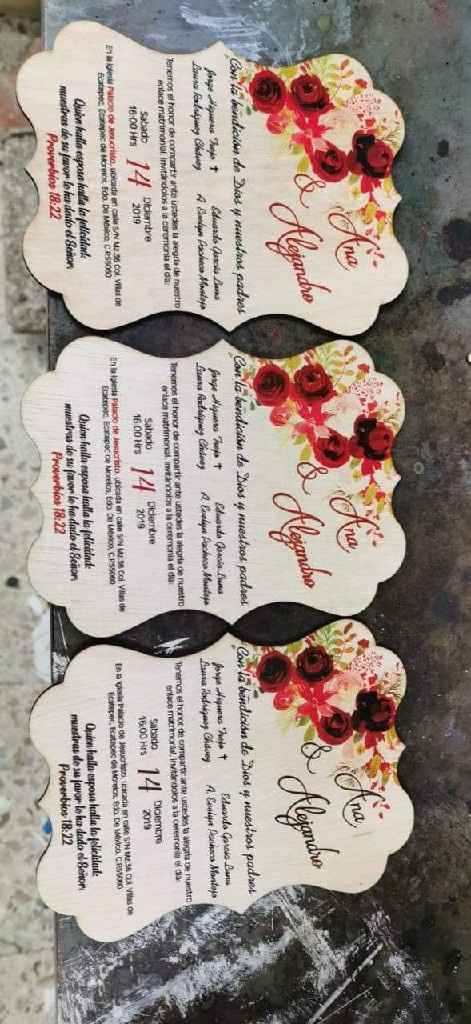 Ana
&
Alejandro
Con la bendición de Dios y nuestros padres
Jorge Higuera Trejo † Eduardo García Luna
Laura Rodríguez Chávez A. Evelyn Pacheco Montoya
Tenemos el honor de compartir ante ustedes la alegría de nuestro
enlace matrimonial, invitándolos a la ceremonia el día:
Sabado 14 Diciembre
16:00 Hrs 2019
En la Iglesia Palacio de Jesucristo, ubicada en calle S/N Mz.56 Col. Villas de
Ecatepec, Ecatepec de Morelos, Edo. De México, C.P.55060
Quien halla esposa halla la felicidad:
muestras de su favor le ha dado el Señor.
Proverbios 18:22
Ana
&
Alejandro
Con la bendición de Dios y nuestros padres
Jorge Higuera Trejo † Eduardo García Luna
Laura Rodríguez Chávez A. Evelyn Pacheco Montoya
Tenemos el honor de compartir ante ustedes la alegría de nuestro
enlace matrimonial, invitándolos a la ceremonia el día:
Sabado 14 Diciembre
16:00 Hrs 2019
En la Iglesia Palacio de Jesucristo, ubicada en calle S/N Mz.56 Col. Villas de
Ecatepec, Ecatepec de Morelos, Edo. De México, C.P.55060
Quien halla esposa halla la felicidad:
muestras de su favor le ha dado el Señor.
Proverbios 18:22
Ana
&
Alejandro
Con la bendición de Dios y nuestros padres
Jorge Higuera Trejo † Eduardo García Luna
Laura Rodríguez Chávez A. Evelyn Pacheco Montoya
Tenemos el honor de compartir ante ustedes la alegría de nuestro
enlace matrimonial, invitándolos a la ceremonia el día:
Sabado 14 Diciembre
16:00 Hrs 2019
En la Iglesia Palacio de Jesucristo, ubicada en calle S/N Mz.56 Col. Villas de
Ecatepec, Ecatepec de Morelos, Edo. De México, C.P.55060
Quien halla esposa halla la felicidad:
muestras de su favor le ha dado el Señor.
Proverbios 18:22